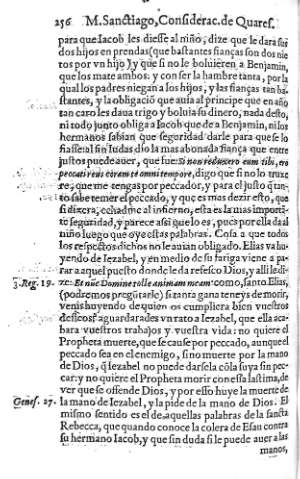 256 M. Sanctiago, Considerac. de Quares.
para que Iacob les diesse al niño, dize que le dara sus
dos hijos en prendas (que bastantes fianças son dos nie
tos por vn hijo) y que si no le boluieren a Benjamin,
que los mate ambos: y con ser la hambre tanta, por la
qual los padres niegan a los hijos, y las fianças tan ba-
stantes, y la obligació que auia al principe que en año
tan caro les daua trigo y boluia su dinero, nada desto,
ni todo junto obliga a Iacob que de a Benjamin, ni los
hermanos sabian que seguridad darle para que se lo
fiasse al fin Iudas dio la mas abonada fiança que entre
justos puede auer, que fue: Si non reduxero eum tibi, ero
peccati reus in te omni tempore, digo que si no lo truxe
re, que me tengas por peccador, y para el justo q̃ tan-
to sabe temer el peccado, y que es mas dezir esto, que
si dixera, echadme al infierno, esta es la mas importã
te seguridad, y parece assi que lo es, pues por ella da al
niño luego que oye estas palabras. Cosa a que todos
los respectos dichos no le auian obligado. Elias va hu-
yendo de Iezabel, y en medio de su fatiga viene a pa-
rar a aquel puesto donde le da refesco Dios, y alli le di-
3. Reg. 19. ze: Et nũc Domine tolle animam meam: como, santo Elias,
(podremos preguntarle) si tanta gana teneys de morir,
venis huyendo de quien os cumpliera bien vuestros
desseos: aguardarades vn rato a Iezabel, que ella aca-
bara vuestros trabajos y vuestra vida: no quiere el
Propheta muerte, que se cause por peccado, aunque el
peccado sea en el enemigo, sino muerte por la mano
de Dios, q̃ Iezabel no puede darsela cõ la suya sin pec-
car: y no quiere el Propheta morir con essa lastima, de
ver que se ofende Dios, y por esso huye la muerte de
Genes. 27. la mano de Iezabel, y la pide de la mano de Dios. El
mismo sentido es el de aquellas palabras de la sancta
Rebecca, que quando conoce la colera de Esau contra
su hermano Iacob, y que sin duda si le puede auer a las
manos,